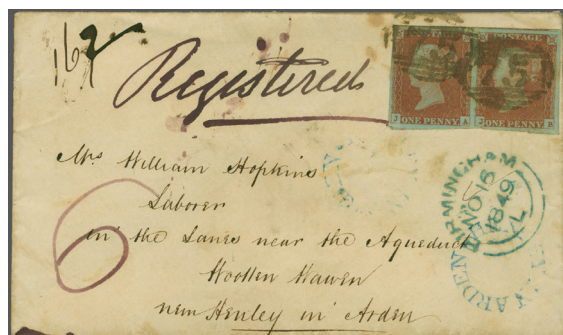 162
Registered
POSTAGE POSTAGE
J A J B
ONE PENNY ONE PENNY
Mrs William Hopkins
Laborer
in the Lanes near the Aqueduct
Wootten Wawen
near Henley in Arden
6
BIRMINGHAM
NO 16
1849
ARDEN